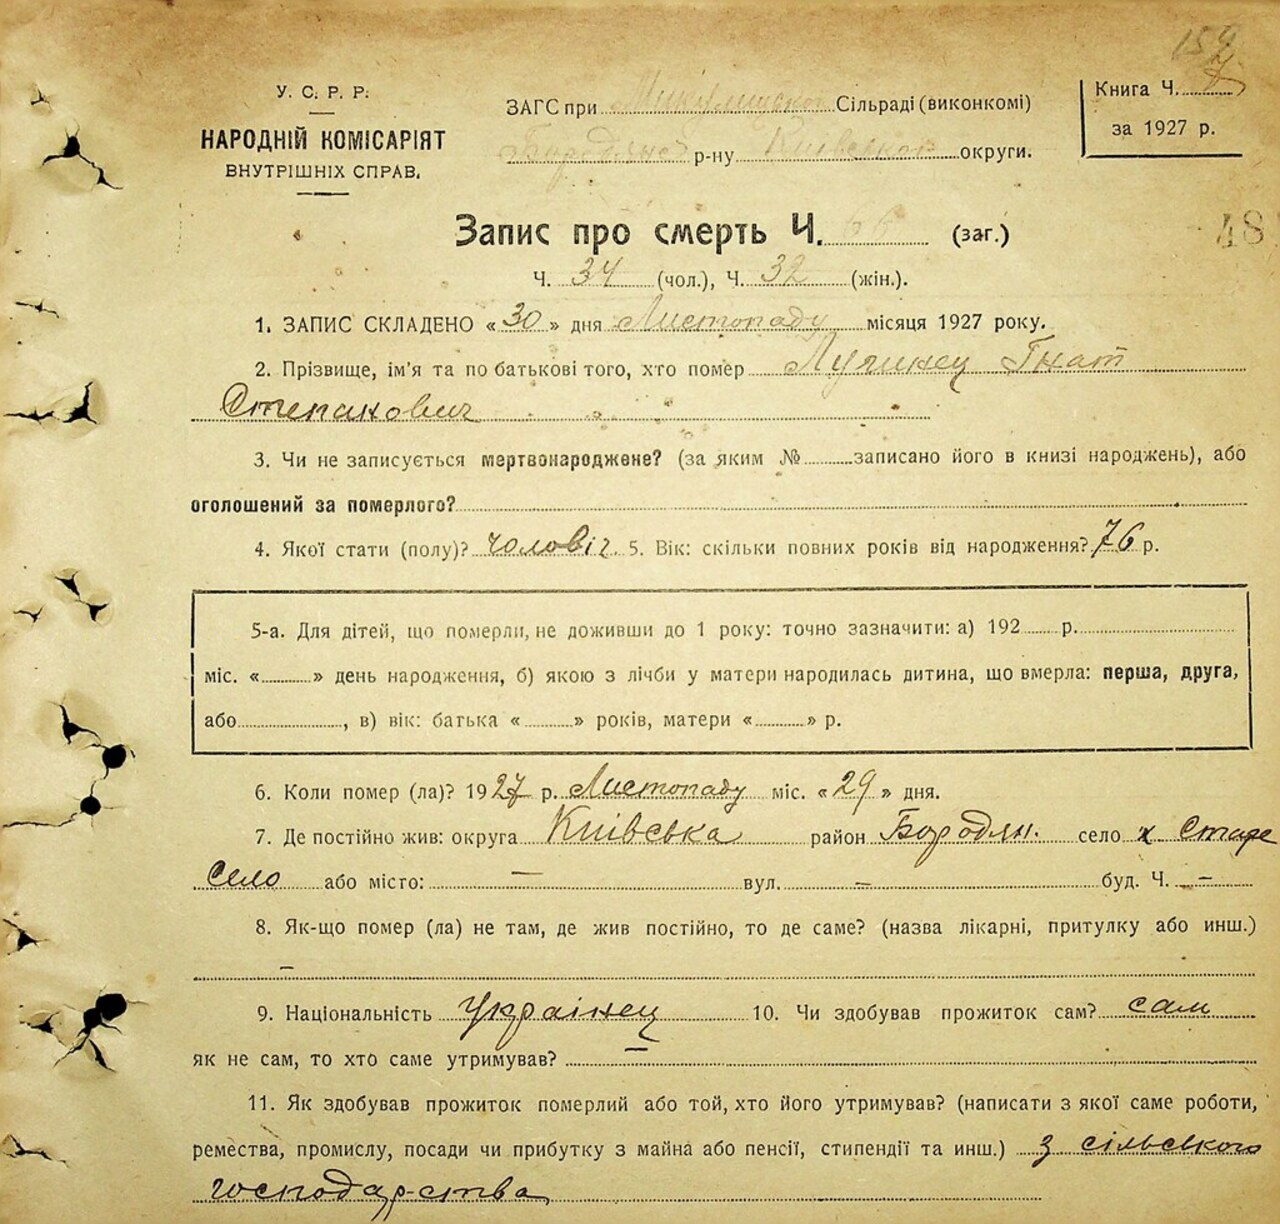 159
У. С. Р. Р.
НАРОДНІЙ КОМІСАРІЯТ
ВНУТРІШНІХ СПРАВ.
ЗАГС при Микулицькой Сільраді (виконкомі)
Бородянс р-ну Київської округи.
Книга Ч. 7
за 1927 р.
48
Запис про смерть Ч. 66 (заг.)
Ч. 34 (чол.), Ч. 32 (жін.).
1. ЗАПИС СКЛАДЕНО «30» дня Листопаду місяця 1927 року.
2. Прізвище, ім'я та по батькові того, хто помер Лучинец Гнат
Степанович
3. Чи не записується мертвонароджене? (за яким № записано його в книзі народжень), або
оголошений за померлого?
4. Якої стати (полу)? чоловіч. 5. Вік: скільки повних років від народження? 76 р.
5-а. Для дітей, що померли, не доживши до 1 року: точно зазначити: а) 192 р.
міс. « » день народження, б) якою з лічби у матери народилась дитина, що вмерла: перша, друга,
або , в) вік: батька « » років, матери « » р.
6. Коли помер (ла)? 1927 р. Листопаду міс. «29» дня.
7. Де постійно жив: округа Київська район Бородян. село х Старе
Село або місто: — вул. — буд. Ч. —
8. Як-що помер (ла) не там, де жив постійно, то де саме? (назва лікарні, притулку або инш.)
—
9. Національність Українец 10. Чи здобував прожиток сам? сам
як не сам, то хто саме утримував? —
11. Як здобував прожиток померлий або той, хто його утримував? (написати з якої саме роботи,
ремества, промислу, посади чи прибутку з майна або пенсії, стипендії та инш.) з сільського
господарства